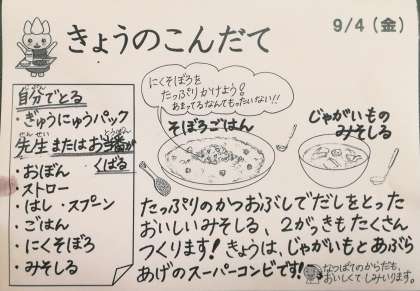 きょうのこんだて
9/4(金)
自分でとる
・ぎゅうにゅうパック
先生またはお当番が
くばる
・おぼん
・ストロー
・はし ・スプーン
・ごはん
・にくそぼろ
・みそしる
にくそぼろを
たっぷりかけよう!
あまってるなんてもったいない!!
そぼろごはん
じゃがいもの
みそしる
たっぷりのかつおぶしでだしをとった
おいしいみそしる、2がっきもたくさん
つくります!きょうは、じゃがいもとあぶら
あげのスーパーコンビです!
なつばてのからだも、
おいしくてしみいります。